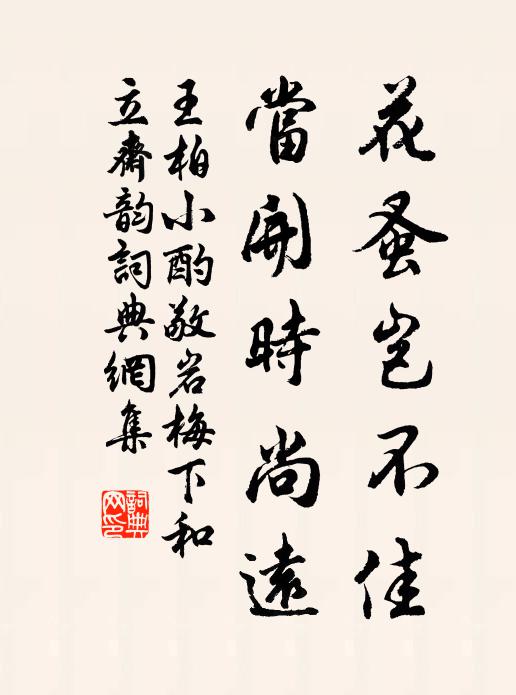 花蚤岂不佳
當開時尚遠
王柏小酌敬岩梅下和
立齋韵詞典網集
詞典网印